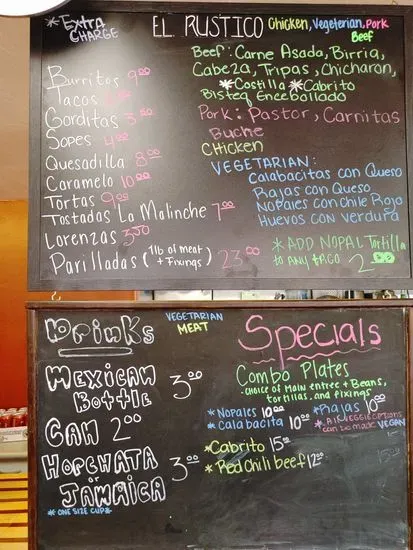 *Extra CHARGE
EL RUSTICO
Chicken, Vegeterian, Pork
Beef
Burritos 9.00
Tacos
Gorditas 3.50
Sopes 4.00
Quesadilla 8.00
Caramelo 10.00
Tortas 9.00
Tostadas La Malinche 7.00
Lorenzas 3.50
Parilladas (1lb of meat + Fixings) 23.00
Beef: Carne Asada, Birria,
Cabeza, Tripas, Chicharon,
*Costilla *Cabrito
Bisteq Encebollado
Pork: Pastor, Carnitas
Buche
CHICKEN
VEGETARIAN:
Calabacitas con Queso
Rajas con Queso
Nopales con Chile Rojo
Huevos con verdura
*ADD NOPAL Tortilla
to ANY tACO 2.00
Drinks
MEXICAN
BOTTLE 3.00
CAN 2.00
HORCHATA
JAMAICA 3.00
*ONE SIZE CUP*
VEGETARIAN
MEAT
Specials
Combo Plates
-CHOICE OF MAIN ENTREE + BEANS,
TORTILLAS, AND FIXINGS
*Nopales 10.00 *Rajas 10.00
*Calabacita 10.00 *All VEGGIE OPTIONS
can be made VEGAN
*Cabrito 15.00
*Red Chili beef 12.00